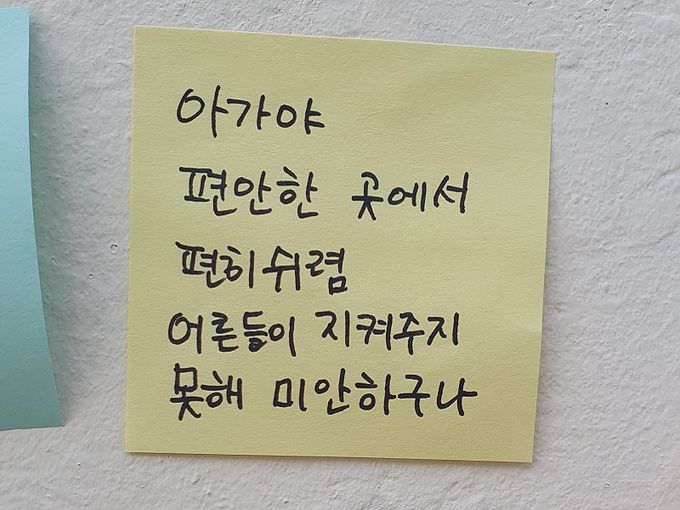 아가야
편안한 곳에서
편히쉬렴
어른들이 지켜주지
못해 미안하구나